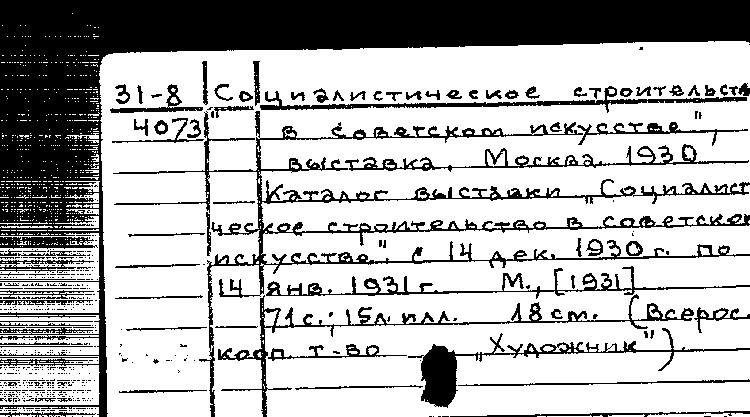 31-8 "Социалистическое строительств
4073 в советском искусстве",
выставка. Москва. 1930
Каталог выставки „Социалист
ческое строительство в советско
искусстве". с 14 дек. 1930 г. по
14 янв. 1931 г. М., [1931]
71 с.; 15 л. илл. 18 cm. (Всерос.
кооп. т-во „Художник").